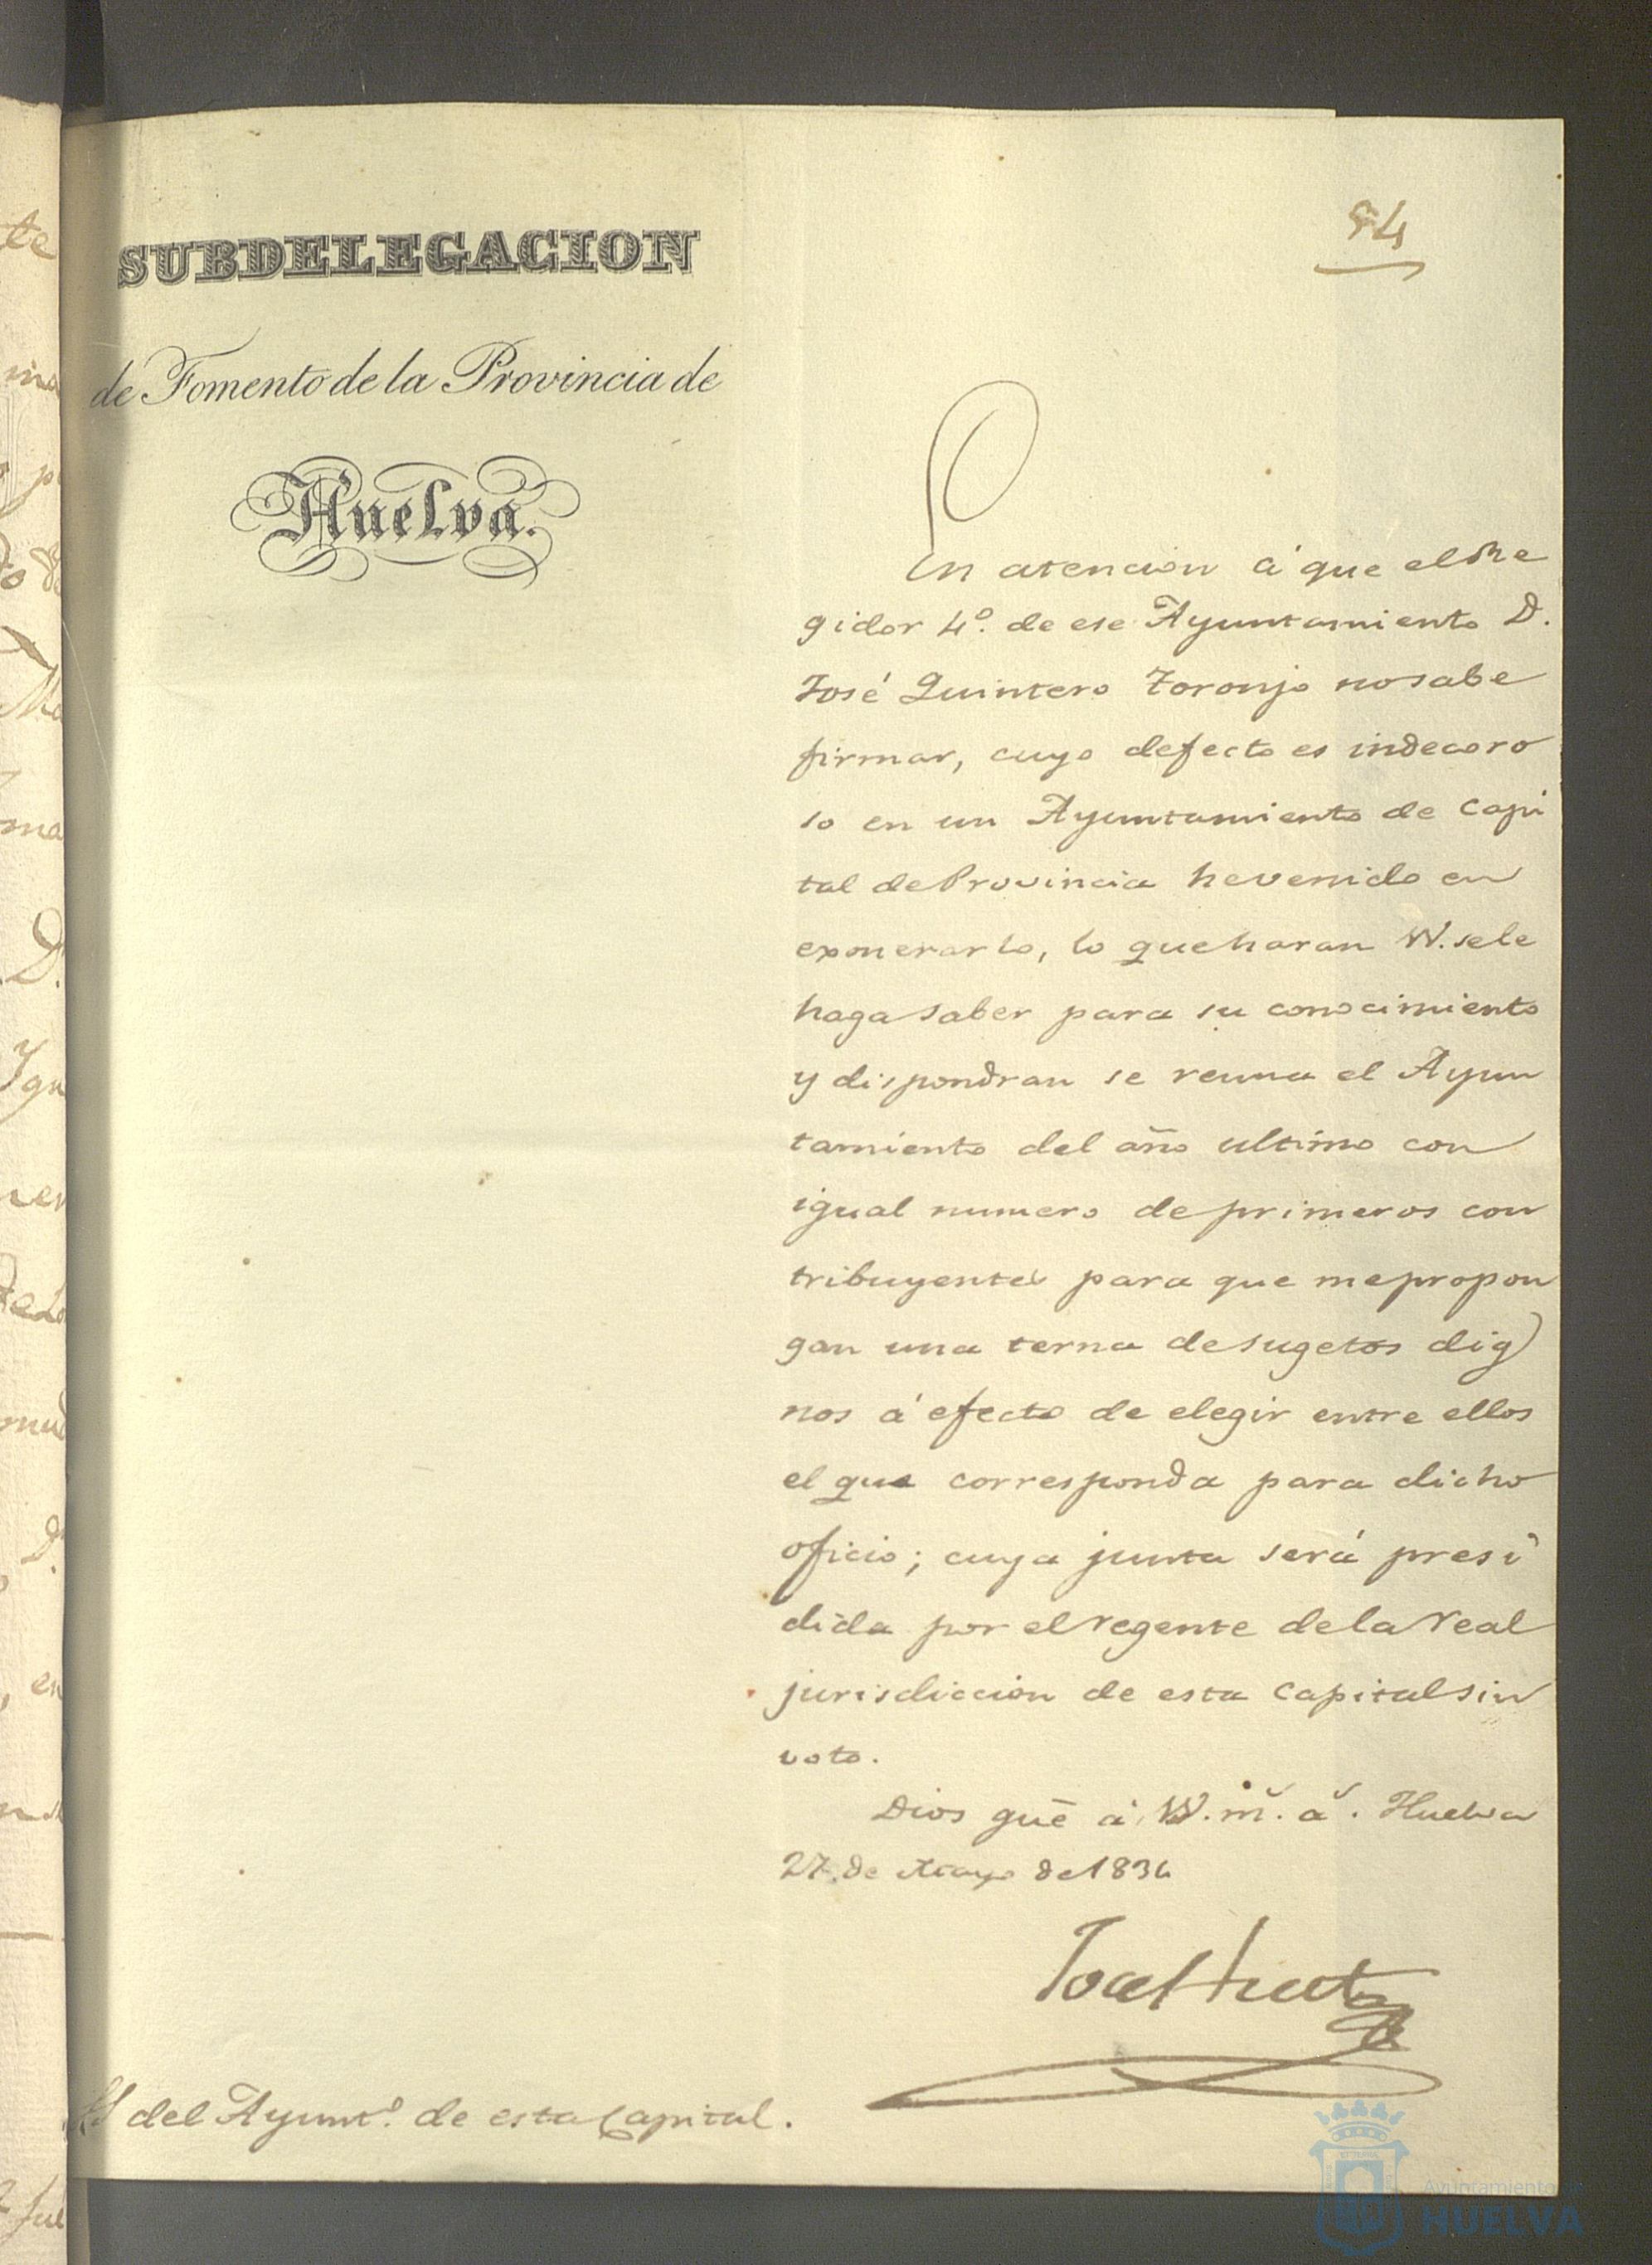 SUBDELEGACION
de Fomento de la Provincia de
Huelva.
94
En atencion á que el Re
gidor 4º. de ese Ayuntamiento D.
José Quintero Toronjo no sabe
firmar, cuyo defecto es indecoro
so en un Ayuntamiento de Capi
tal de Provincia he venido en
exonerarlo, lo que haran VV. se le
haga saber para su conocimiento
y dispondran se reuna el Ayun
tamiento del año ultimo con
igual numero de primeros con
tribuyentes para que me propon
gan una terna de sugetos dig
nos á efecto de elegir entre ellos
el que corresponda para dicho
oficio; cuya junta será presi
dida por el regente de la real
jurisdiccion de esta Capital sin
voto.
Dios gue á VV. m.s a.s. Huelva
27 de Mayo de 1834
José Huet
del Ayunt.º de esta Capital.
Ayuntamiento de
HUELVA